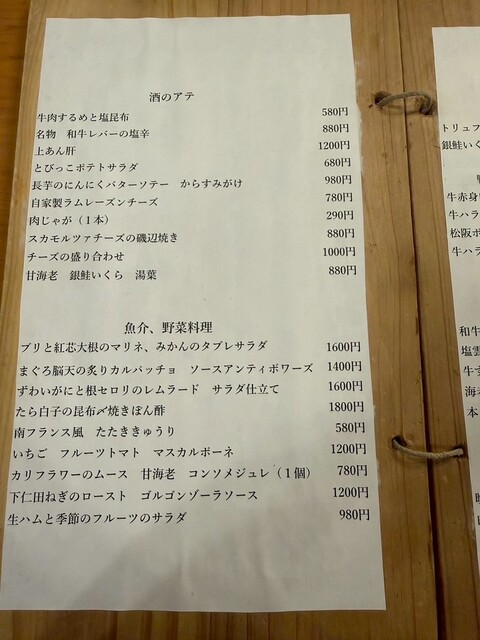 酒のアテ
牛肉するめと塩昆布 580円
名物 和牛レバーの塩辛 880円
上あん肝 1200円
とびっこポテトサラダ 680円
長芋のにんにくバターソテー からすみがけ 980円
自家製ラムレーズンチーズ 780円
肉じゃが（１本） 290円
スカモルツァチーズの磯辺焼き 880円
チーズの盛り合わせ 1000円
甘海老 銀鮭いくら 湯葉 880円
魚介、野菜料理
ブリと紅芯大根のマリネ、みかんのタブレサラダ 1600円
まぐろ脳天の炙りカルパッチョ ソースアンティボワーズ 1400円
ずわいがにと根セロリのレムラード サラダ仕立て 1600円
たら白子の昆布〆焼きぽん酢 1800円
南フランス風 たたききゅうり 580円
いちご フルーツトマト マスカルポーネ 1200円
カリフラワーのムース 甘海老 コンソメジュレ（１個） 780円
下仁田ねぎのロースト ゴルゴンゾーラソース 1200円
生ハムと季節のフルーツのサラダ 980円
トリュフ
銀鮭いく
牛赤身
牛ハラ
松阪ポ
牛ハラ
和牛
塩雲
牛す
海老
本